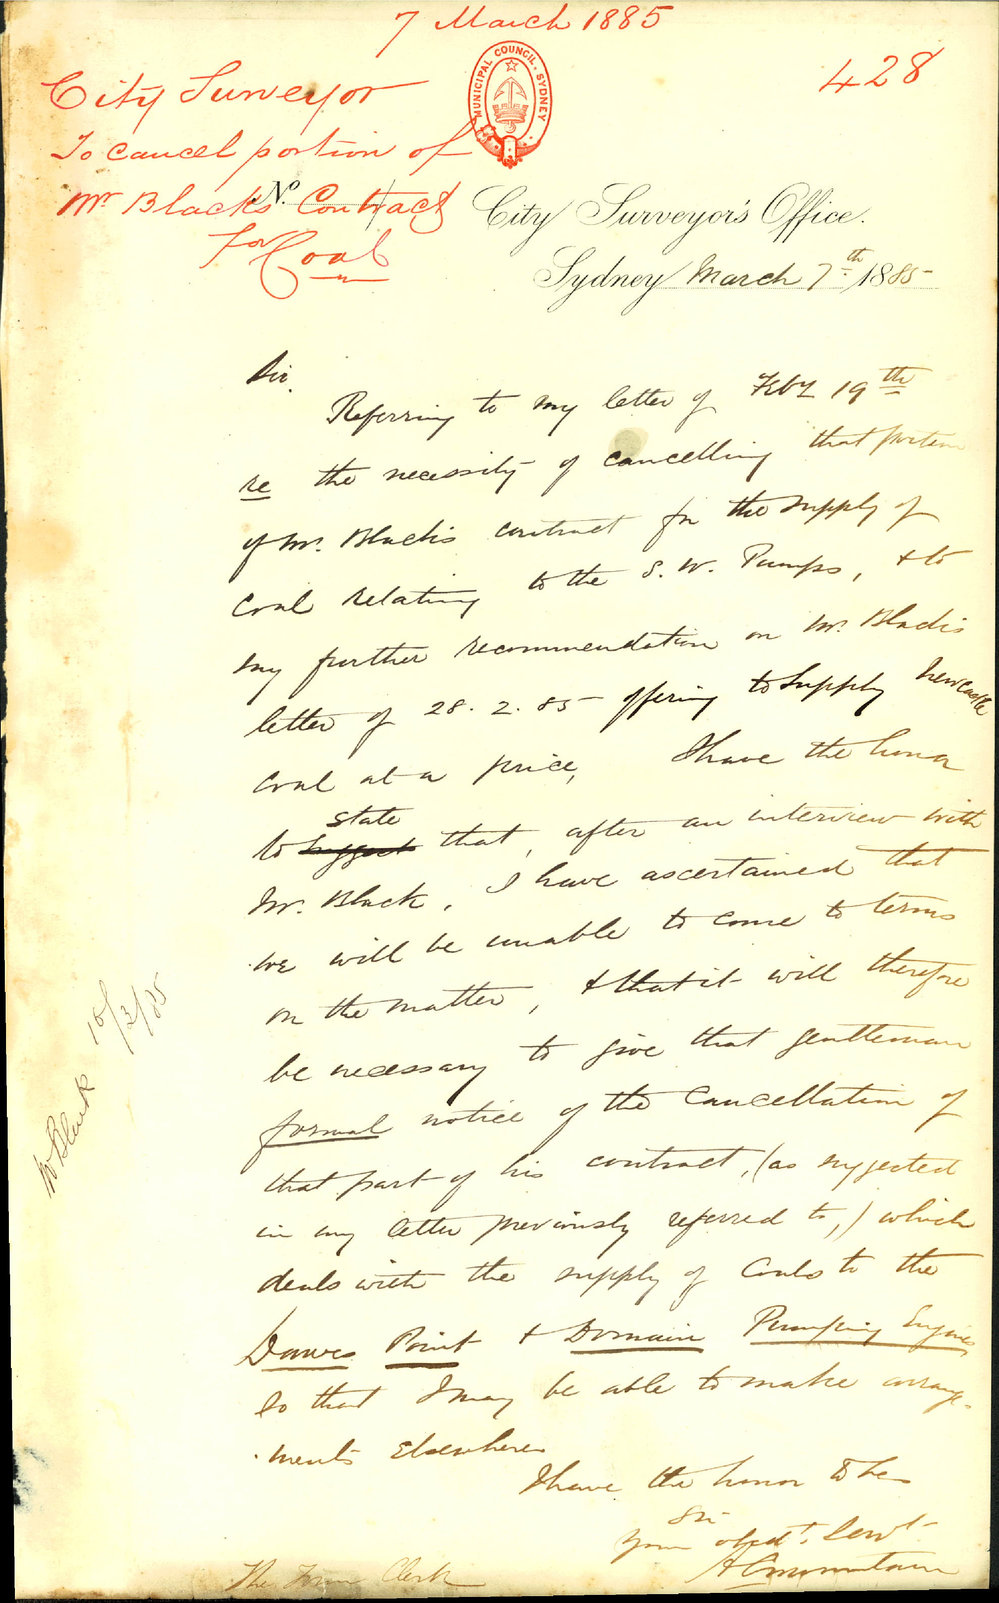 7 March 1885
428
MUNICIPAL COUNCIL. SYDNEY
City Surveyor
To cancel portion of
Mr Blacks Contract
for Coal
No.
City Surveyor's Office.
Sydney March 7th 1885
Sir.
Referring to my letter of Feby 19th
re the necessity of cancelling that portion
of Mr. Black's contract for the supply of
coal relating to the S. W. Pumps, & to
my further recommendation on Mr. Black's
letter of 28. 2. 85 offering to supply Newcastle
coal at a price, I have the honor
state
to suggest that, after an interview with
Mr. Black, I have ascertained that
we will be unable to come to terms
on the matter, & that it will therefore
be necessary to give that gentleman
formal notice of the cancellation of
that part of his contract, (as suggested
in my letter previously referred to,) which
deals with the supply of Coals to the
Dawes Point & Domain Pumping Engines,
So that I may be able to make arrange-
ments Elsewhere
I have the honor to be
Sir
Your obedt. Servt
The Town Clerk
W Black 10/3/85